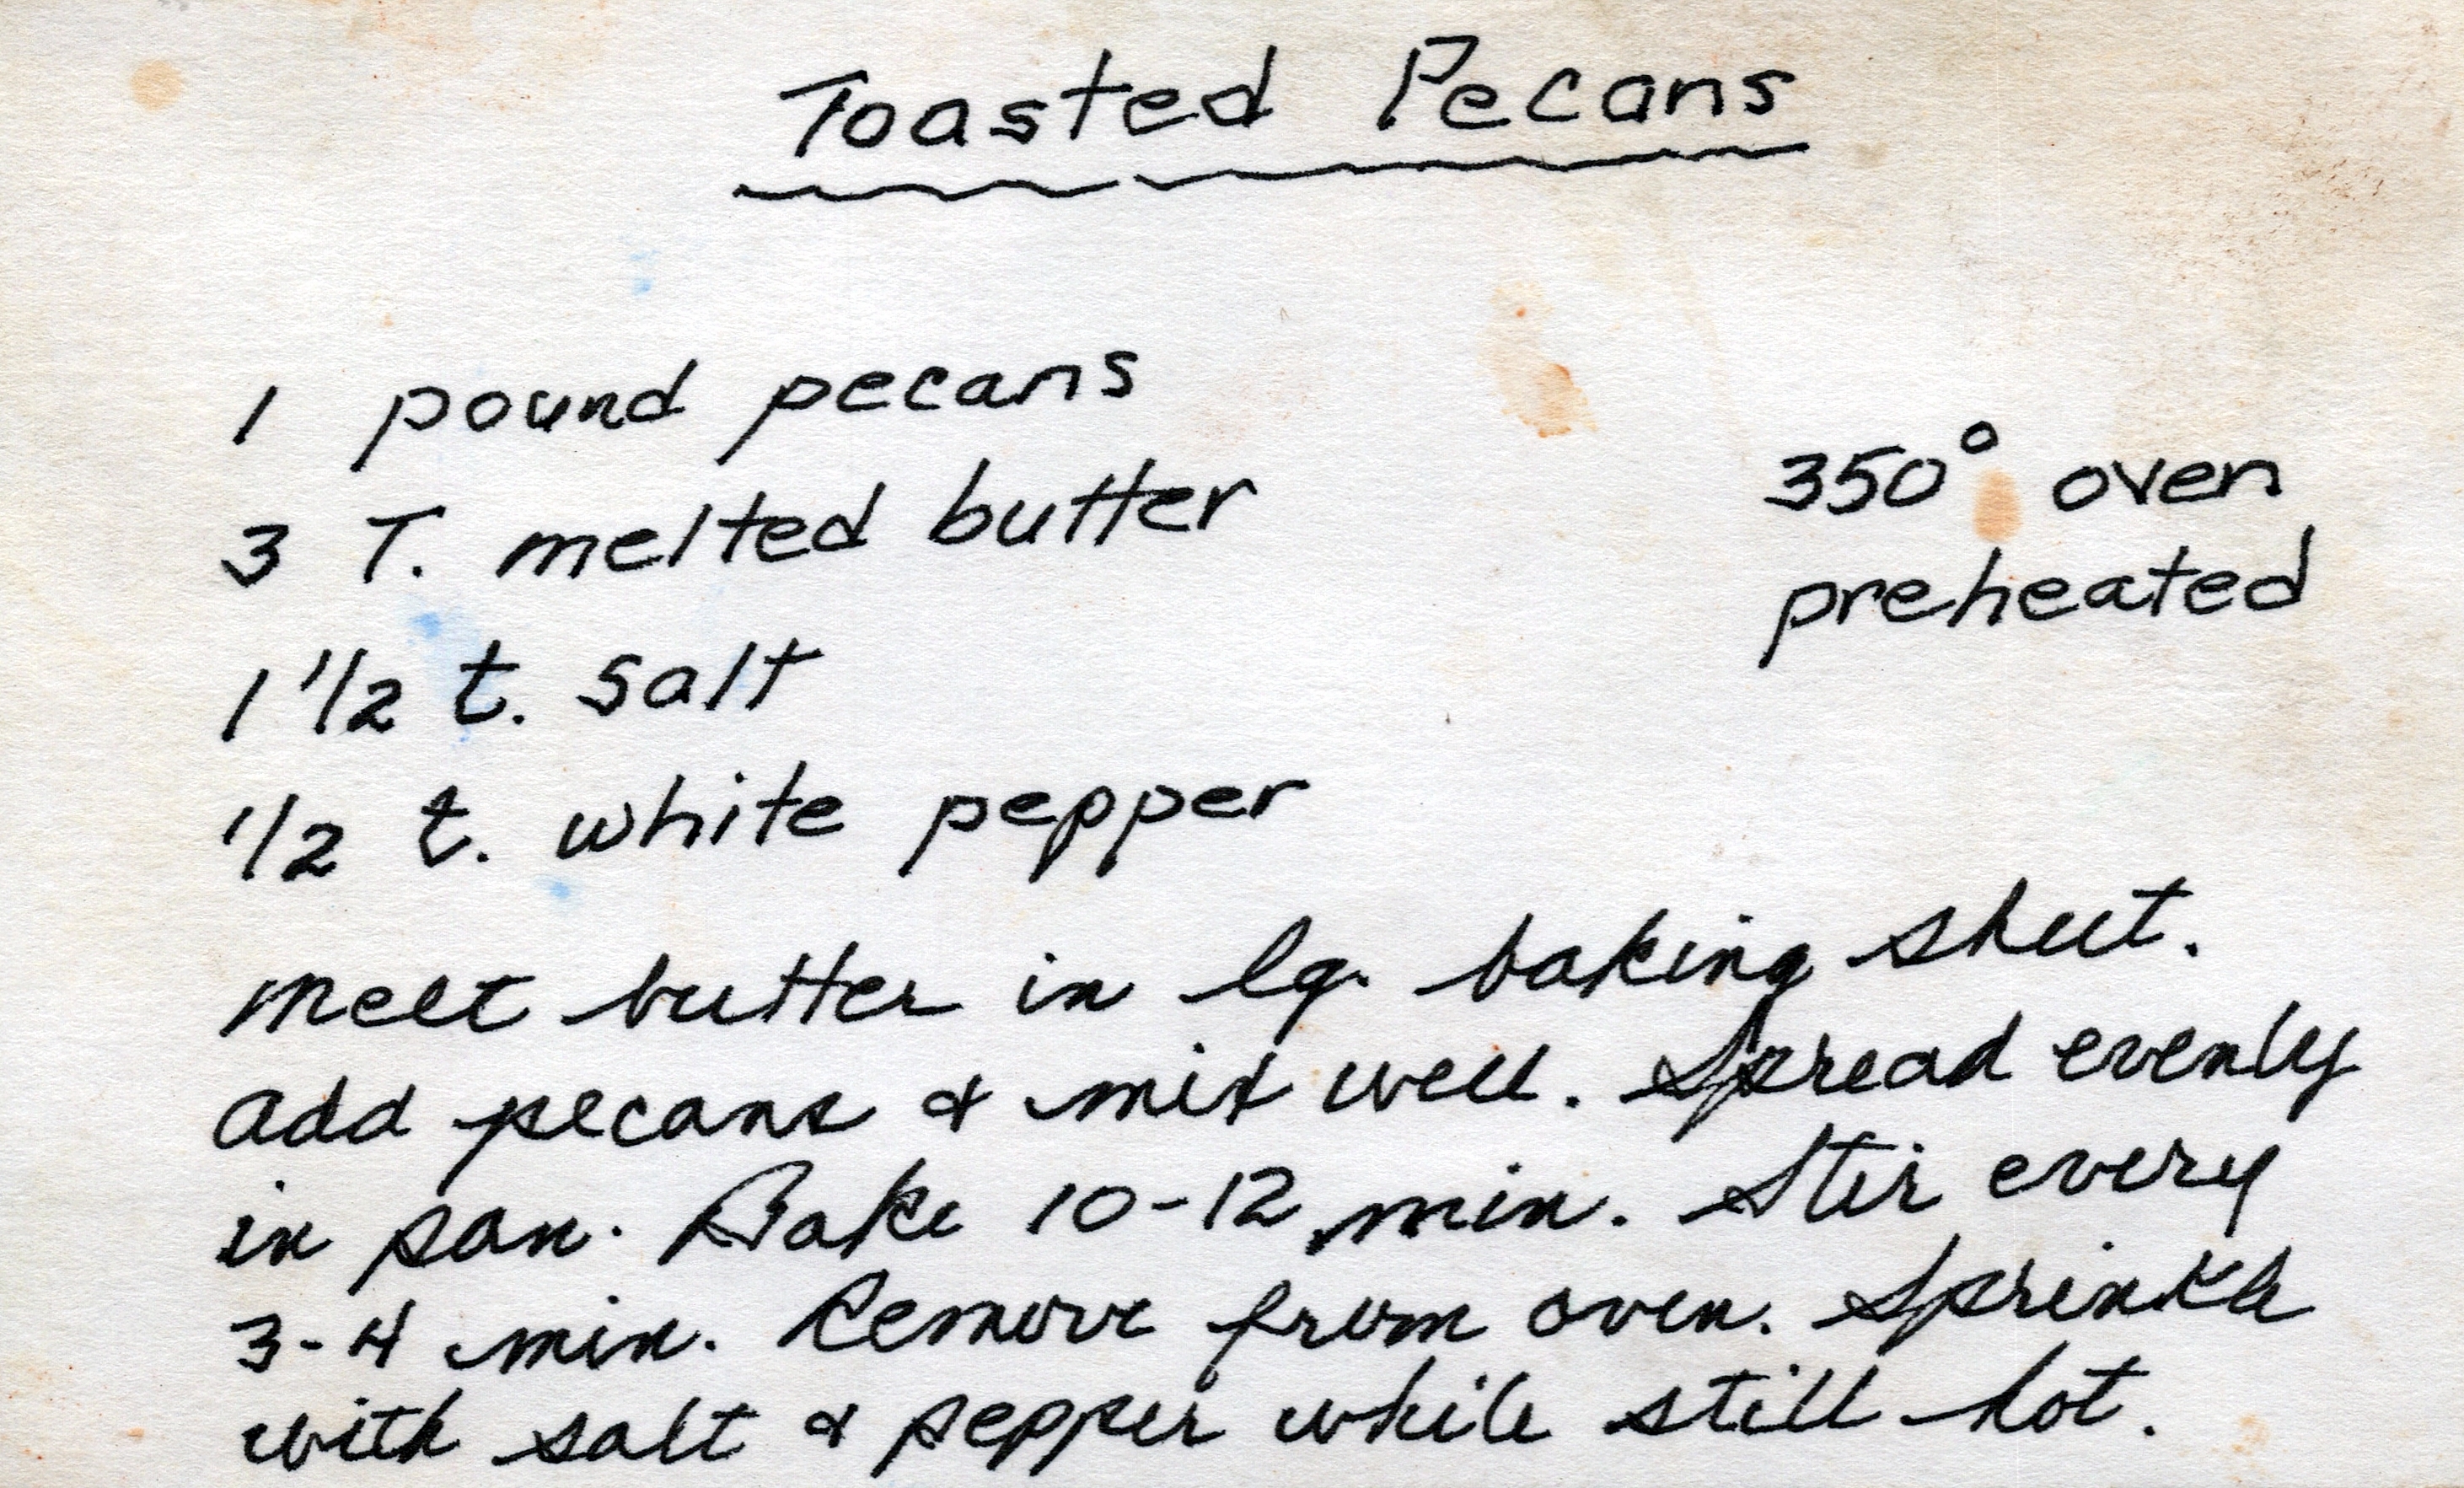 Toasted Pecans
1 pound pecans
3 T. melted butter
350° oven
preheated
1 1/2 t. salt
1/2 t. white pepper
Melt butter in lg. baking sheet.
Add pecans & mix well. Spread evenly
in pan. Bake 10-12 min. Stir every
3-4 min. Remove from oven. Sprinkle
with salt & pepper while still hot.